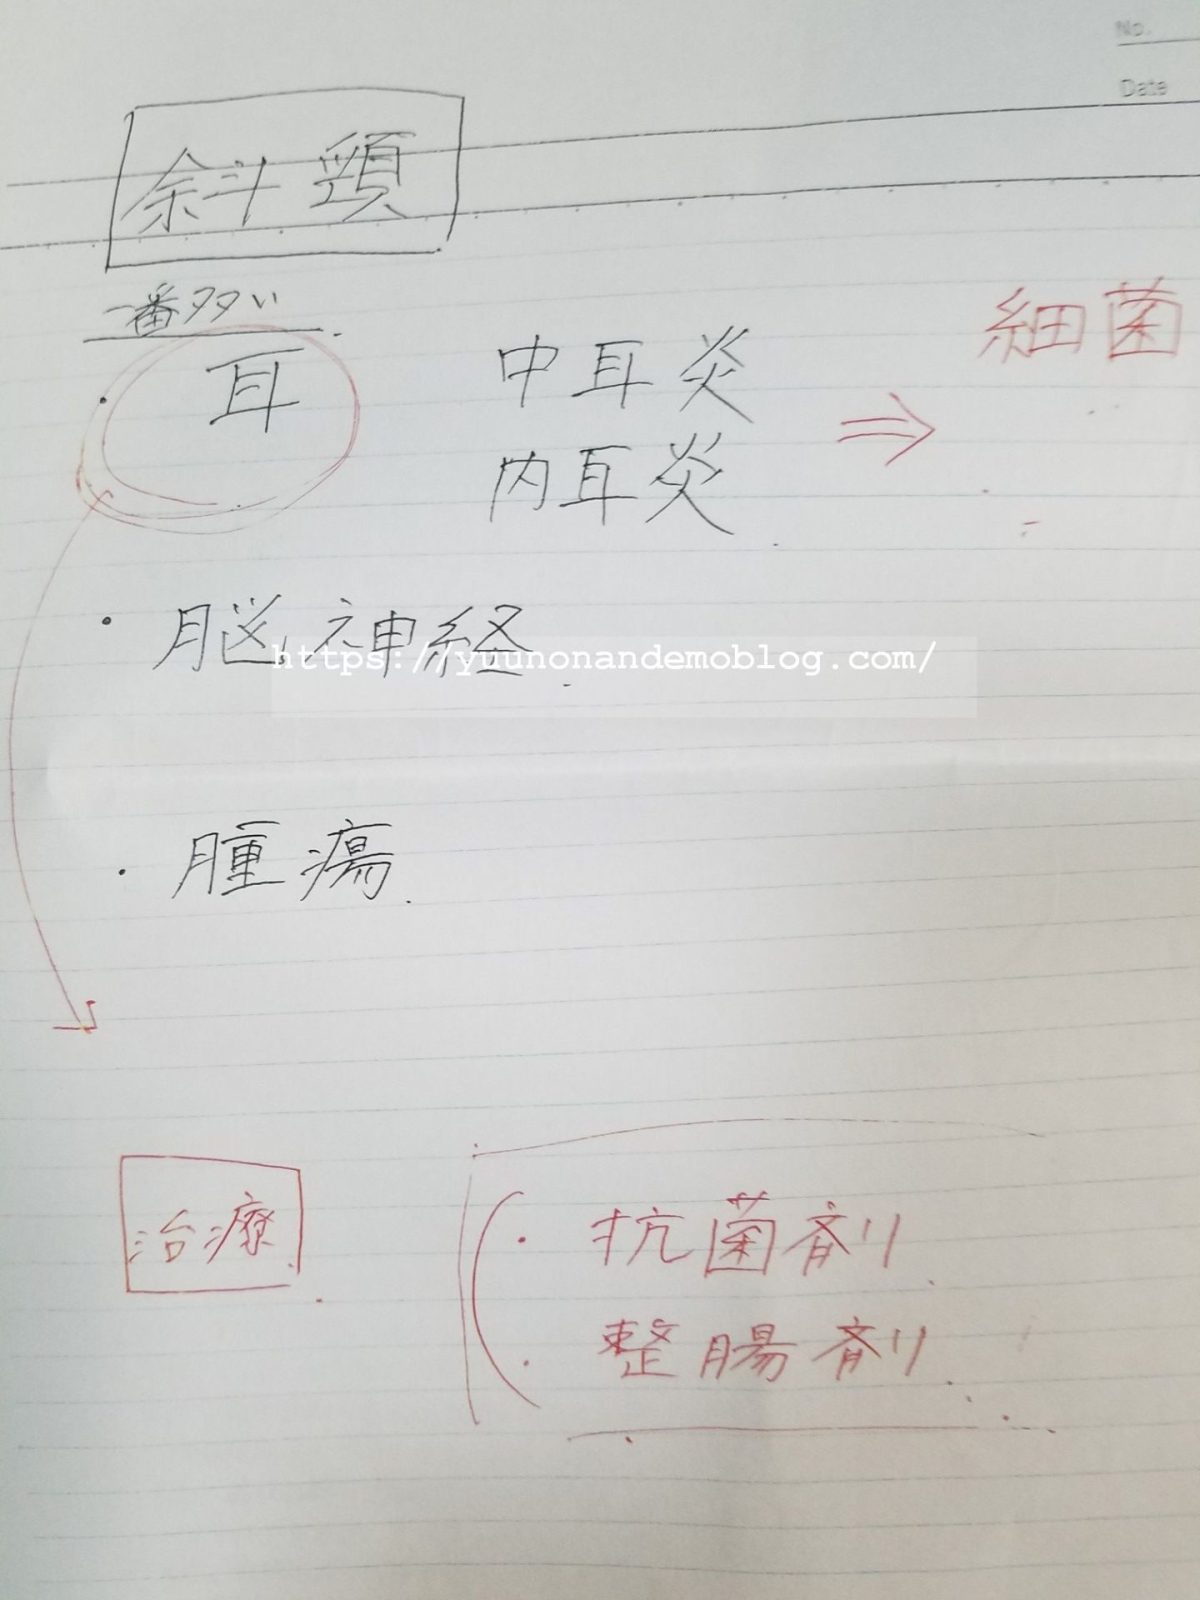 No.
Date
斜頸
一番多い
・耳
中耳炎
内耳炎
⇒
細菌
・脳神経
https://yuunonandemoblog.com/
・腫瘍
治療
・抗菌剤
・整腸剤